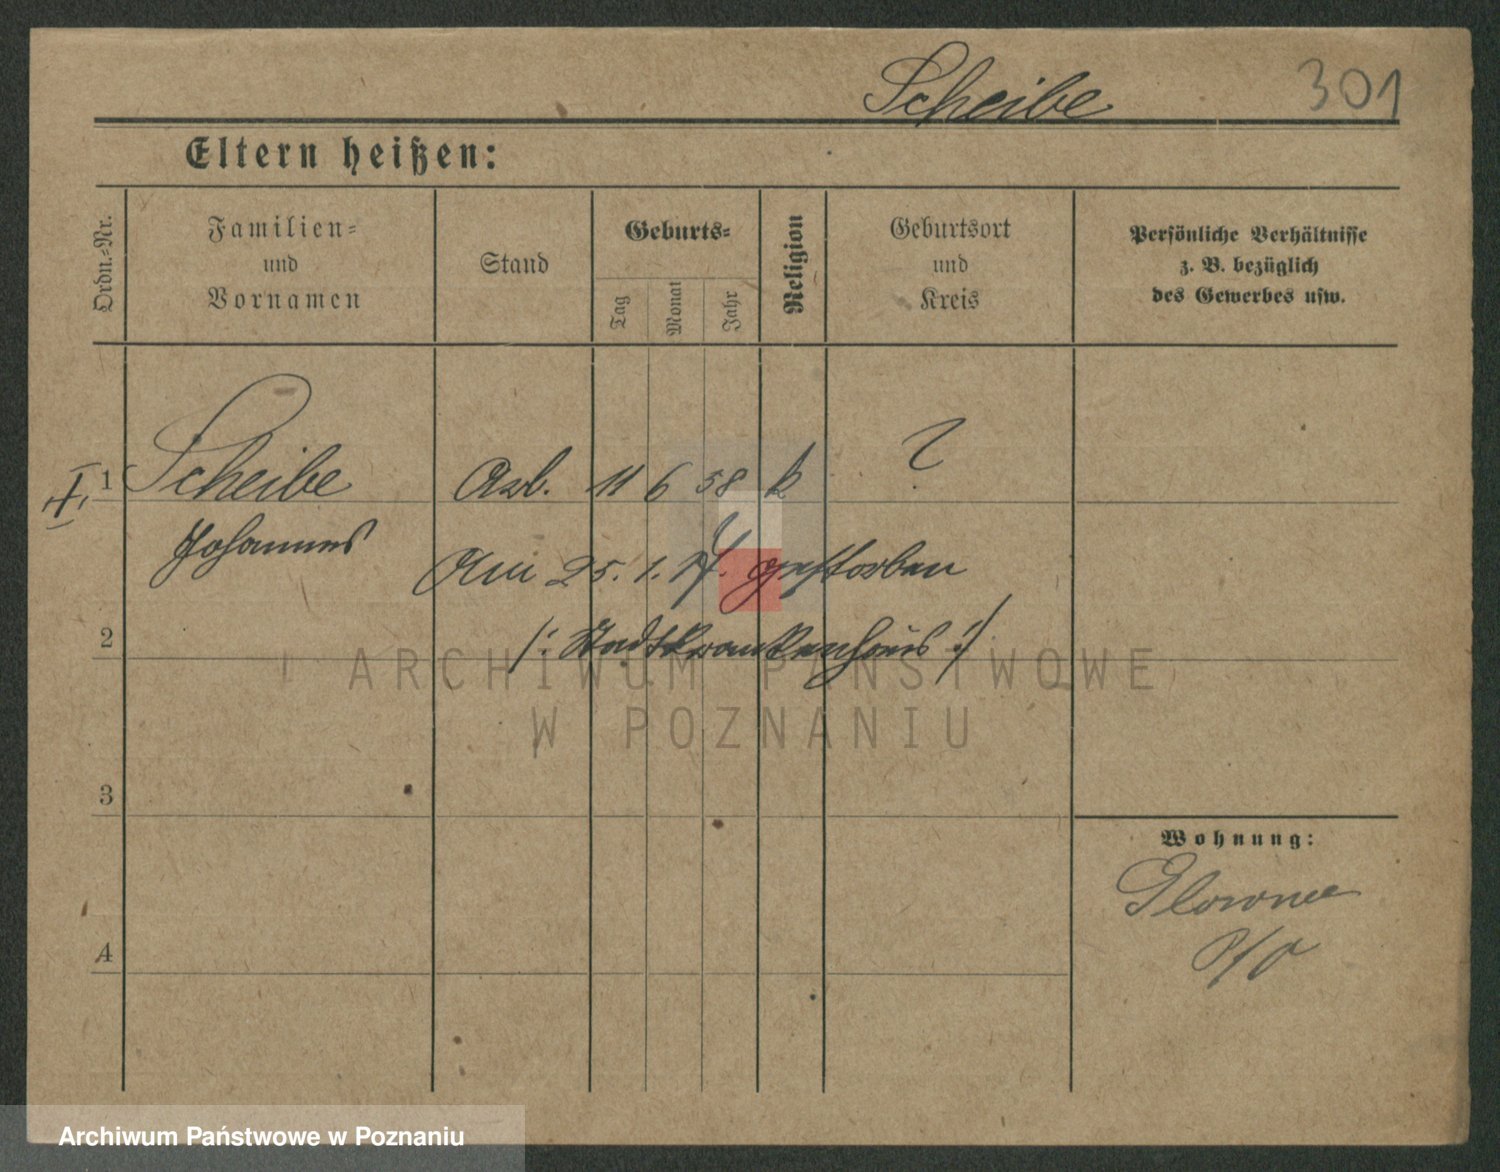 Scheibe
301
Eltern heißen:
Ordn.=Nr.
Familien=
und
Vornamen
Stand
Geburts=
Tag
Monat
Jahr
Religion
Geburtsort
und
Kreis
Persönliche Verhältnisse
z. B. bezüglich
des Gewerbes usw.
1 Scheibe Arb. 11 6 58 k ?
Johannes
Am 25. 1. 17. gestorben
/: Stadtkrankenhaus :/
2
ARCHIWUM PAŃSTWOWE
W POZNANIU
3
Wohnung:
Glowno
4
Archiwum Państwowe w Poznaniu